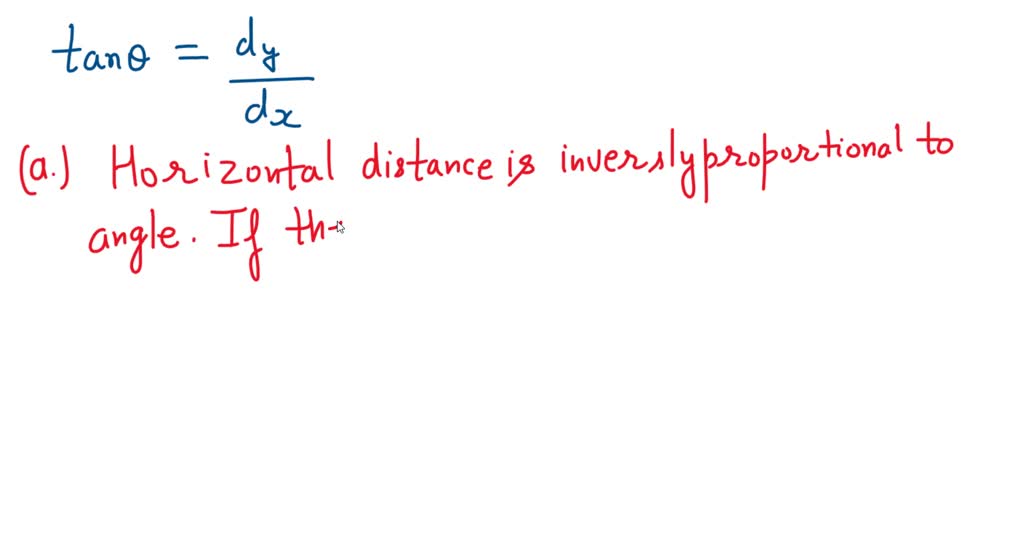 tanθ = dy
dx
(a.) Horizontal distance is inversly proportional to
angle. If th